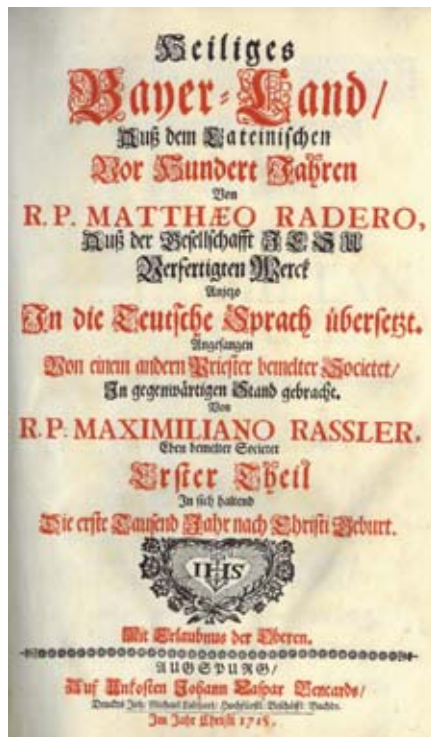 Heiliges
Bayer-Land/
Auß dem Lateinischen
Vor Hundert Jahren
Von
R. P. MATTHÆO RADERO,
Auß der Gesellschafft JESU
Verfertigten Werck
Anjetzo
In die Teutsche Sprach übersetzt.
Angefangen
Von einem andern Priester bemelter Societet/
In gegenwärtigen Stand gebracht.
Von
R. P. MAXIMILIANO RASSLER,
Eben bemelter Societet
Erster Theil
In sich haltend
Die erste Tausend Jahr nach Christi Geburt.
IHS
Mit Erlaubnus der Oberen.
AUGSPURG/
Auf Unkosten Johann Caspar Bencards/
Druckts Joh. Michael Labhart/ Hochfürstl. Bischöffl. Buchdr.
Im Jahr Christi